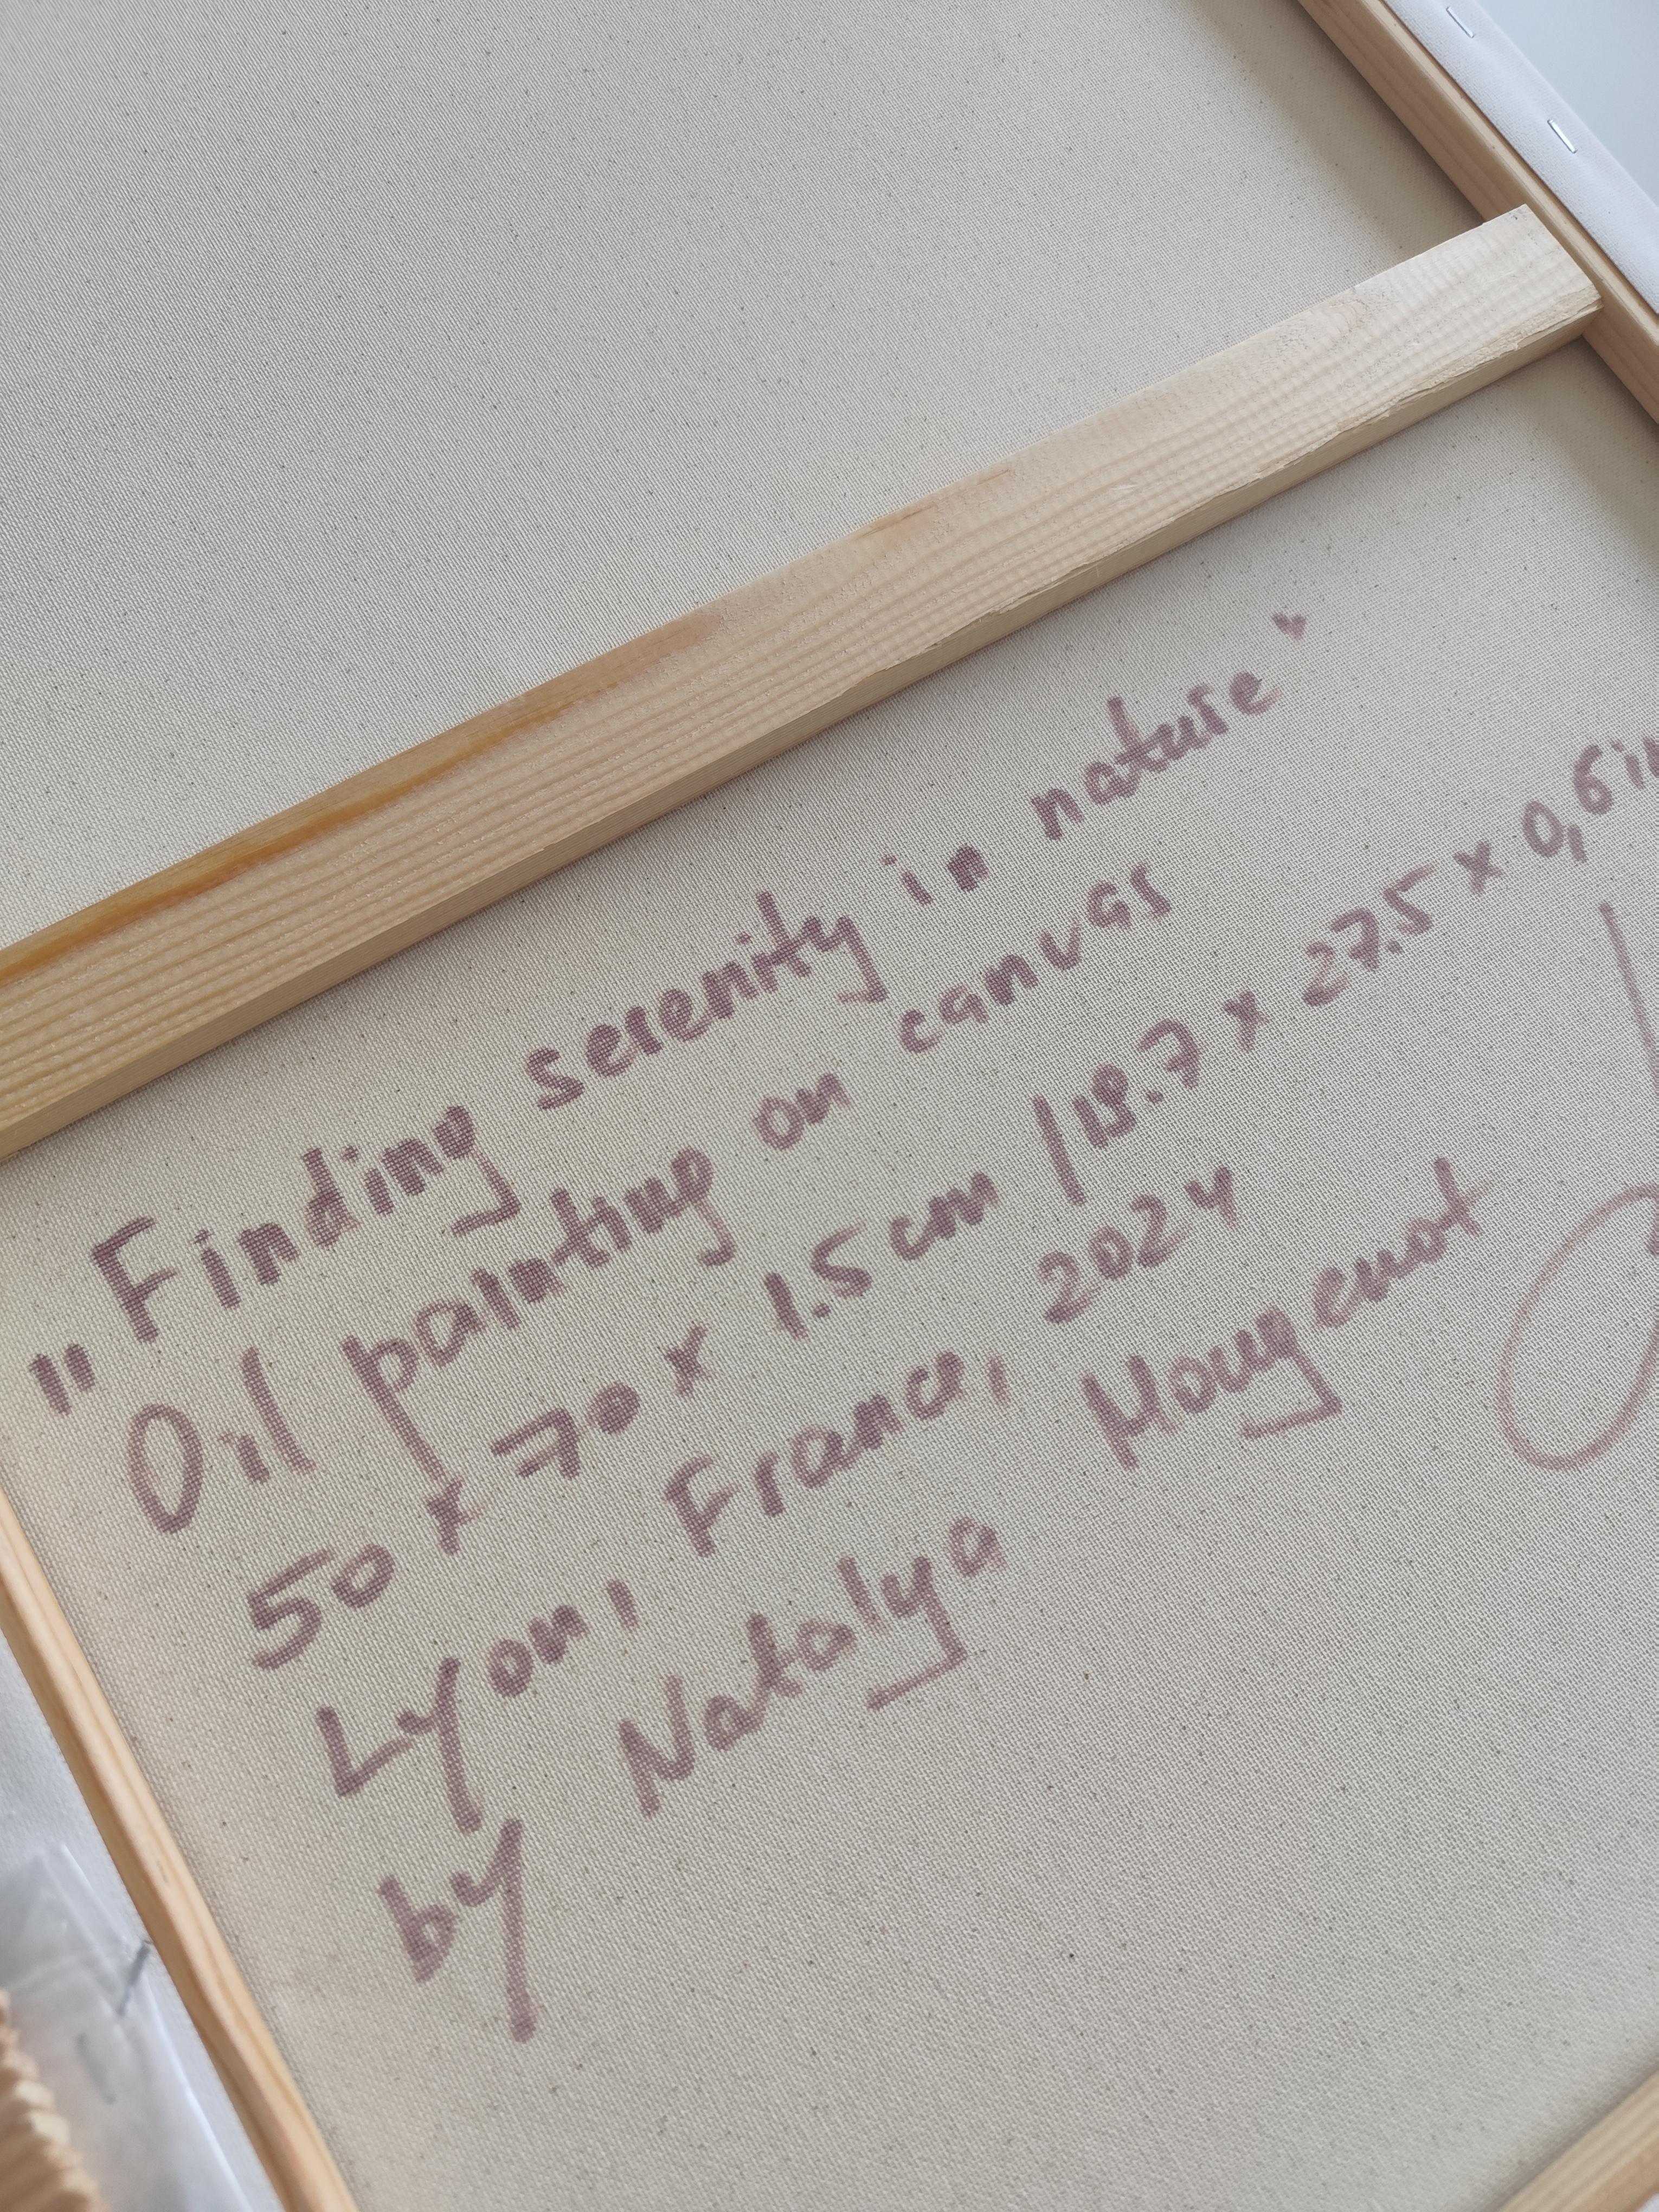 "Finding serenity in nature"
Oil painting on canvas
50 x 70 x 1.5 cm / 19.7 x 27.5 x 0,6 in
Lyon, France, 2024
by Natalya Mougenot